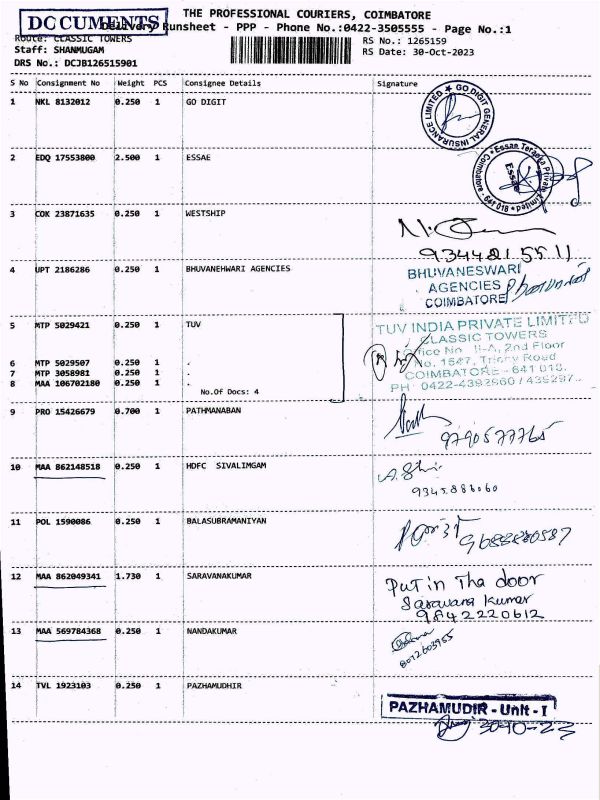 DOCUMENTS
THE PROFESSIONAL COURIERS, COIMBATORE
Delivery Runsheet - PPP - Phone No.:0422-3505555 - Page No.:1
Route: CLASSIC TOWERS
RS No.: 1265159
Staff: SHANMUGAM
RS Date: 30-Oct-2023
DRS No.: DCJB126515901
S No Consignment No Weight PCS Consignee Details Signature
1 NKL 8132012 0.250 1 GO DIGIT
GO DIGIT GENERAL INSURANCE LIMITED
2 EDQ 17553800 2.500 1 ESSAE
Essae Private Limited
Coimbatore - 641 018
Essae
3 COK 23871635 0.250 1 WESTSHIP
9344815511
4 UPT 2186286 0.250 1 BHUVANEHWARI AGENCIES
BHUVANESWARI
AGENCIES
COIMBATORE
5 MTP 5029421 0.250 1 TUV
6 MTP 5029507 0.250 1 .
7 MTP 3058981 0.250 1 .
8 MAA 106702180 0.250 1 .
No.Of Docs: 4
TUV INDIA PRIVATE LIMITED
CLASSIC TOWERS
Office No. II-A, 2nd Floor
No. 1547, Trichy Road
COIMBATORE - 641 018.
PH : 0422-4392960 /
9 PRO 15426679 0.700 1 PATHMANABAN
9790577765
10 MAA 862148518 0.250 1 HDFC SIVALIMGAM
9345886060
11 POL 1590086 0.250 1 BALASUBRAMANIYAN
12 MAA 862049341 1.730 1 SARAVANAKUMAR
Put in Tha door
Saravana Kumar
9842220612
13 MAA 569784368 0.250 1 NANDAKUMAR
8072603955
14 TVL 1923103 0.250 1 PAZHAMUDHIR
PAZHAMUDIR - Unit - I